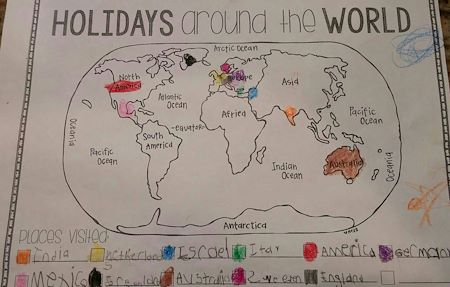 HOLIDAYS around the WORLD
Arctic Ocean
North America
Europe
Asia
Atlantic Ocean
Pacific Ocean
Africa
equator
South America
Oceania
Pacific Ocean
Indian Ocean
Australia
Oceania
Antarctica
PLACES VISITED:
India Netherlands Israel Italy America Germany
Mexico Greenland Australia Sweeen England